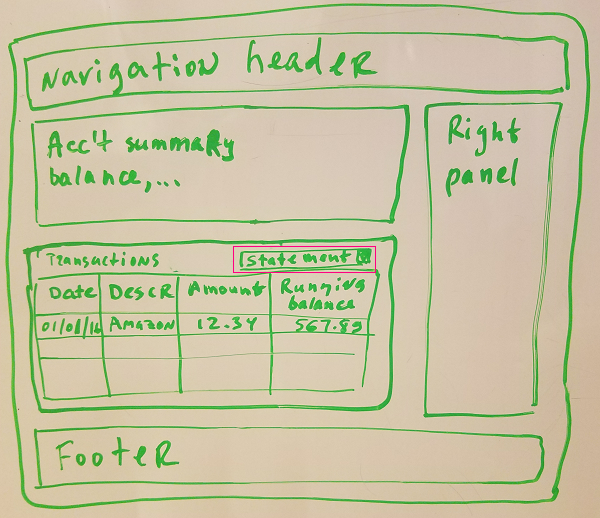 Navigation header
Acc't summary
balance,...
Right
panel
Transactions
statement
Date Descr Amount Running balance
01/01/16 Amazon 12.34 567.89
Footer